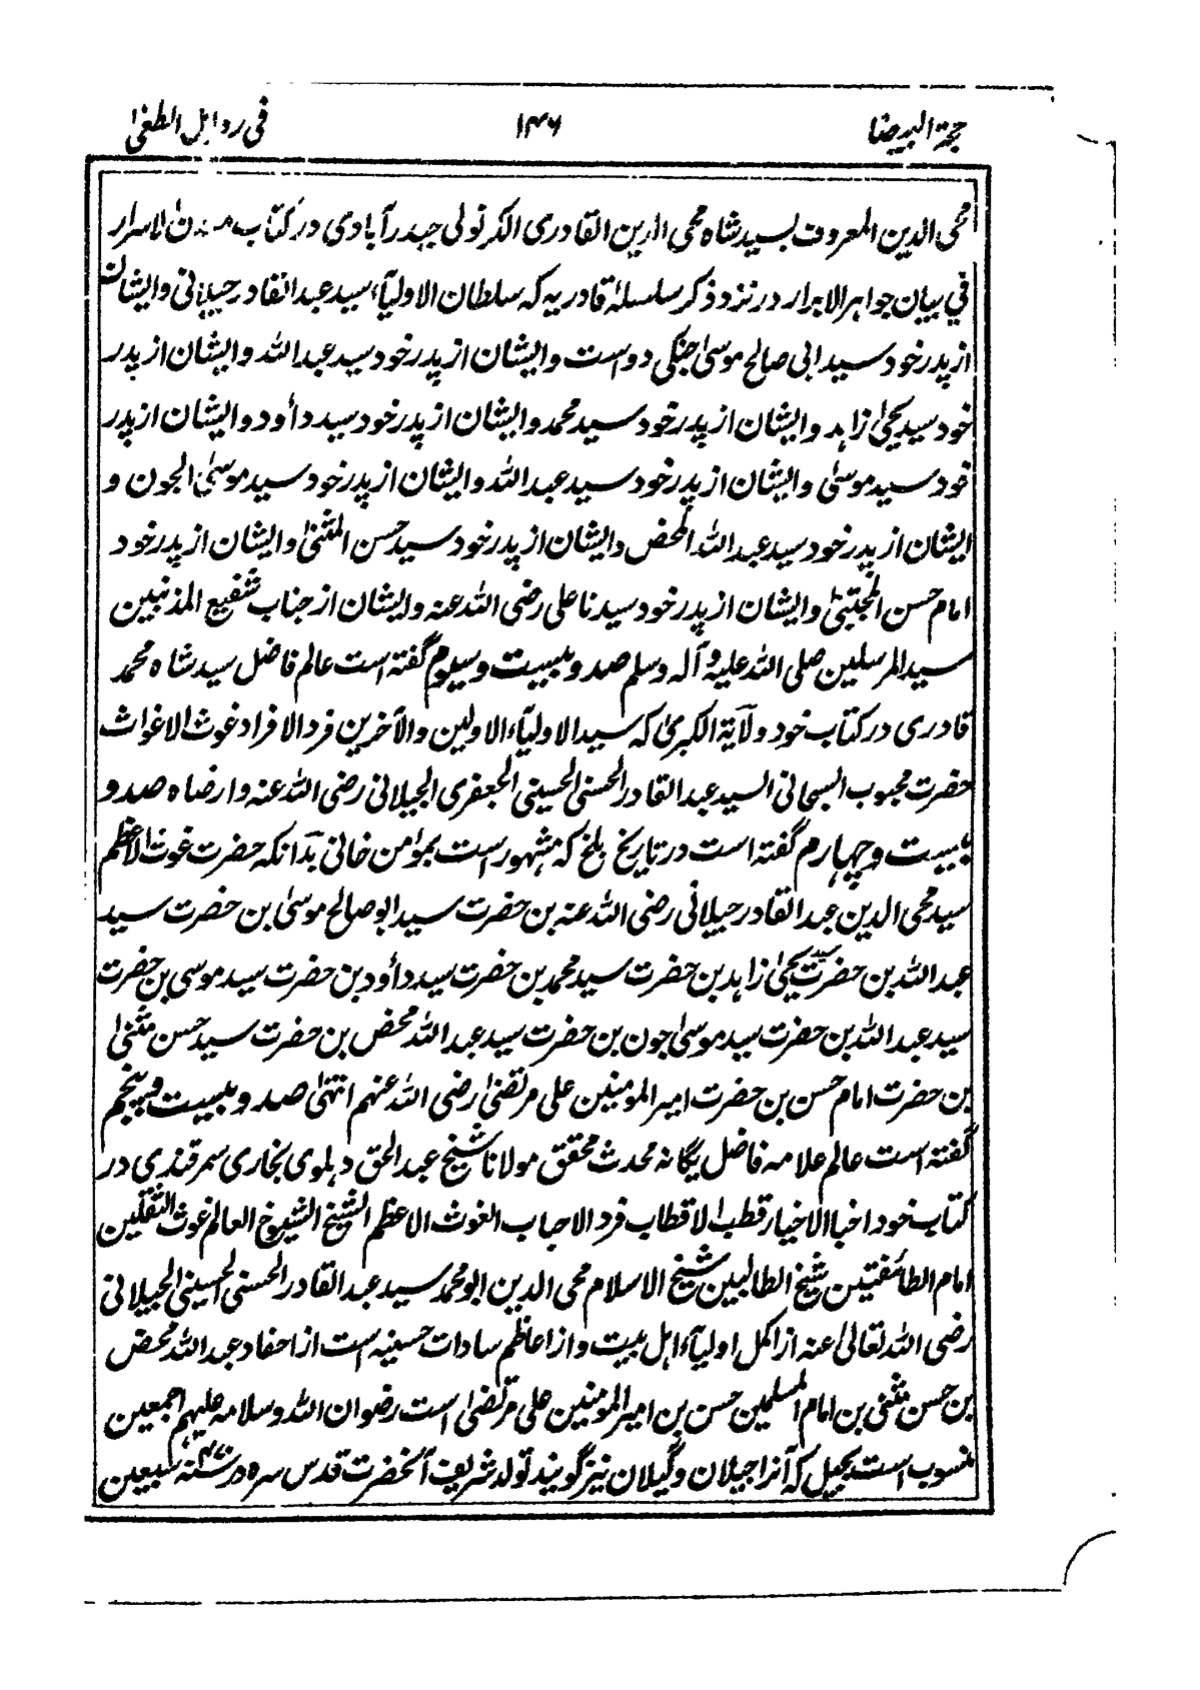 حجة البیضا ۱۴۶ فی رد اہل الطغیٰ
محی الدین المعروف بسید شاہ محی الدین القادری الکرنولی حیدرآبادی در کتاب معدن الاسرار
فی بیان جواہر الابرار در نزد ذکر سلسلۂ قادریہ کہ سلطان الاولیآء سید عبد القادر جیلانی وایشان
از پدر خود سید ابی صالح موسیٰ جنگی دوست وایشان از پدر خود سید عبد اللہ وایشان از پدر
خود سید یحییٰ زاہد وایشان از پدر خود سید محمد وایشان از پدر خود سید داؤد وایشان از پدر
خود سید موسیٰ وایشان از پدر خود سید عبد اللہ وایشان از پدر خود سید موسیٰ الجون و
ایشان از پدر خود سید عبد اللہ المحض وایشان از پدر خود سید حسن المثنیٰ وایشان از پدر خود
امام حسن المجتبیٰ وایشان از پدر خود سیدنا علی رضی اللہ عنہ وایشان از جناب شفیع المذنبین
سید المرسلین صلی اللہ علیہ و آلہ وسلم صد و بیست و سیوم گفتہ است عالم فاضل سید شاہ محمد
قادری در کتاب خود ولآیۃ الکبریٰ کہ سید الاولیآء الاولین والآخرین فرد الافراد غوث الاغواث
حضرت محبوب السبحانی السید عبد القادر الحسنی الحسینی الجعفری الجیلانی رضی اللہ عنہ وارضاہ صد و
بیست و چہارم گفتہ است در تاریخ بلخ کہ مشہور است بمؤمن خانی بدانکہ حضرت غوث الاعظم
سید محی الدین عبد القادر جیلانی رضی اللہ عنہ بن حضرت سید ابو صالح موسیٰ بن حضرت سید
عبد اللہ بن حضرت سید یحییٰ زاہد بن حضرت سید محمد بن حضرت سید داؤد بن حضرت سید موسی بن حضرت
سید عبد اللہ بن حضرت سید موسیٰ جون بن حضرت سید عبد اللہ محض بن حضرت سید حسن مثنیٰ
بن حضرت امام حسن بن حضرت امیر المومنین علی مرتضیٰ رضی اللہ عنہم انتہیٰ صد و بیست و پنجم
گفتہ است عالم علامہ فاضل یگانہ محدث محقق مولانا شیخ عبد الحق دہلوی بخاری سمرقندی در
کتاب خود اخبا الاخیار قطب الاقطاب فرد الاحباب الغوث الاعظم الشیخ الشیوخ العالم غوث الثقلین
امام الطائفتین شیخ الطالبین شیخ الاسلام محی الدین ابو محمد سید عبد القادر الحسنی الحسینی الجیلانی
رضی اللہ تعالیٰ عنہ از اکمل اولیآء اہل بیت و از اعاظم سادات حسنیہ است از احفاد عبد اللہ محض
بن حسن مثنی بن امام المسلمین حسن بن امیر المومنین علی مرتضیٰ است رضوان اللہ وسلامہ علیہم اجمعین
منسوب است بجیل کہ آنرا جیلان و گیلان نیز گویند تولد شریف آنحضرت قدس سرہ در ۴۷۰ سنہ سبعین